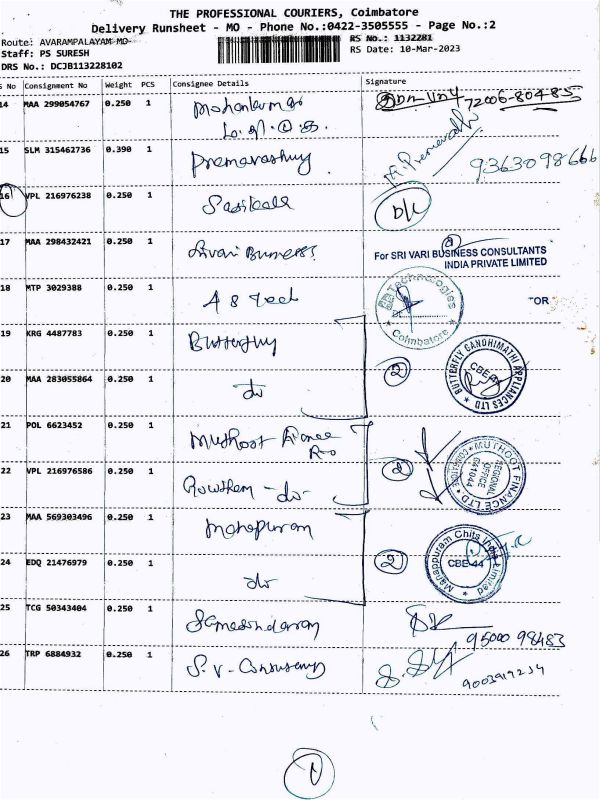 THE PROFESSIONAL COURIERS, Coimbatore
Delivery Runsheet - MO - Phone No.:0422-3505555 - Page No.:2
Route: AVARAMPALAYAM MO-
RS No.: 1132281
Staff: PS SURESH
RS Date: 10-Mar-2023
DRS No.: DCJB113228102
S No Consignment No Weight PCS Consignee Details Signature
14 MAA 299054767 0.250 1
72006-80485
15 SLM 315462736 0.390 1
9363098666
16 VPL 216976238 0.250 1
b/c
17 MAA 298432421 0.250 1
For SRI VARI BUSINESS CONSULTANTS
INDIA PRIVATE LIMITED
18 MTP 3029388 0.250 1 A S Tech
Technologies
Coimbatore
"OR
19 KRG 4487783 0.250 1 Butterfly
2
BUTTERFLY GANDHIMATHI APPLIANCES LTD
CBE-44
20 MAA 283055864 0.250 1 do
21 POL 6623452 0.250 1 Muthoot Finance
RO
MUTHOOT FINANCE LTD
REGIONAL
OFFICE
641044
22 VPL 216976586 0.250 1 Gowtham -do-
23 MAA 569303496 0.250 1 Manapuram
2
Manappuram Chits India Limited
CBE-44
24 EDQ 21476979 0.250 1 do
25 TCG 50343404 0.250 1
95000 98483
26 TRP 6884932 0.250 1 S.V. Consultancy
9003919234
1